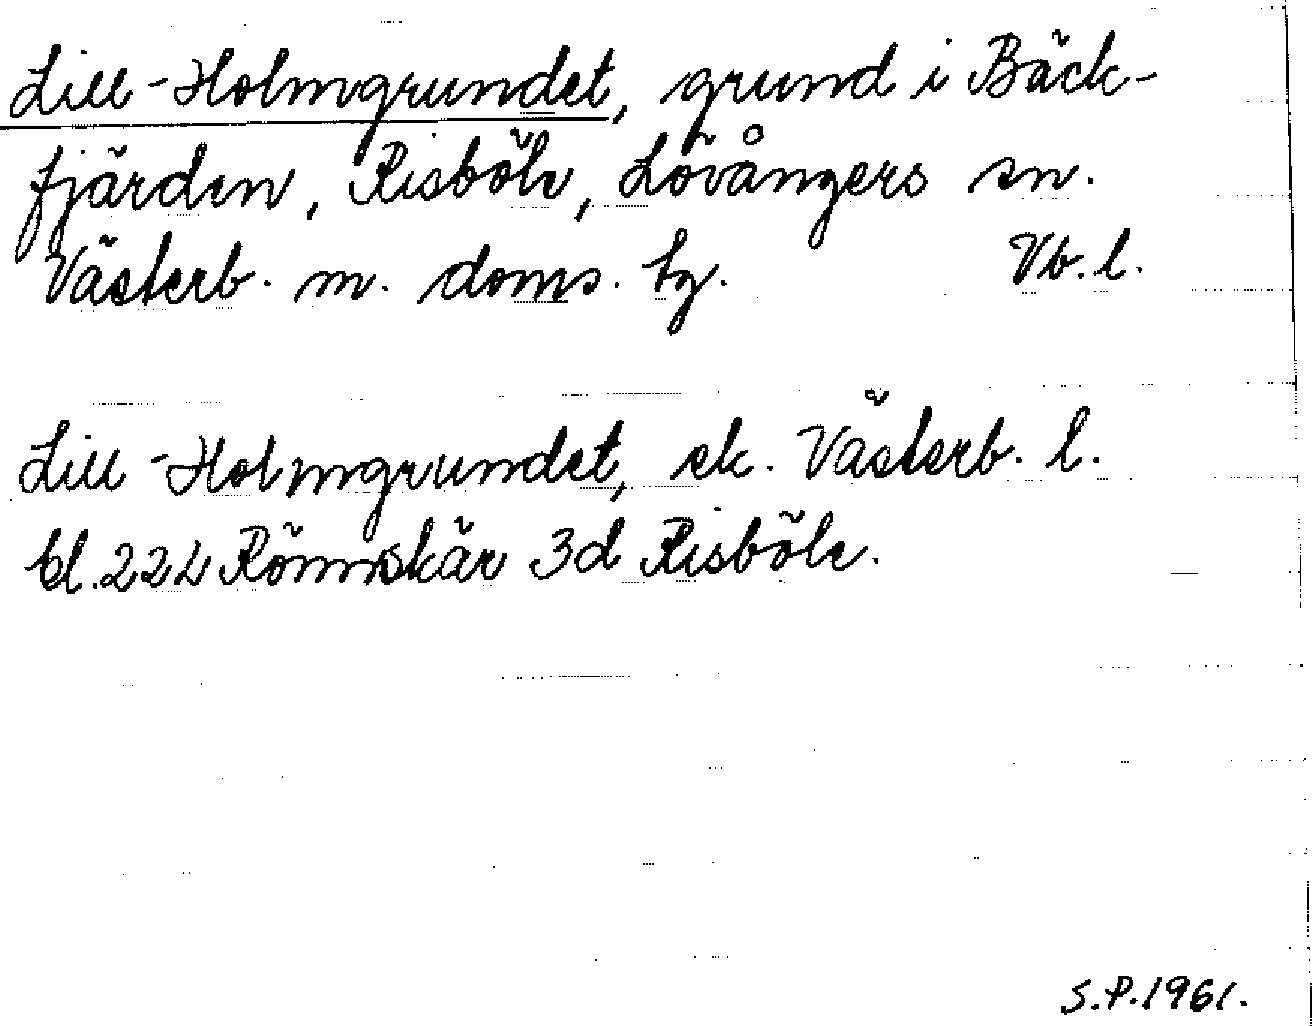 Lill-Holmgrundet, grund i Bäck-
fjärden, Risböle, Lövångers sn.
Västerb. m. doms. tg. Vb. l.
Lill-Holmgrundet, ek. Västerb. l.
bl. 22L Rönnskär 3d Risböle.
S.P. 1961.